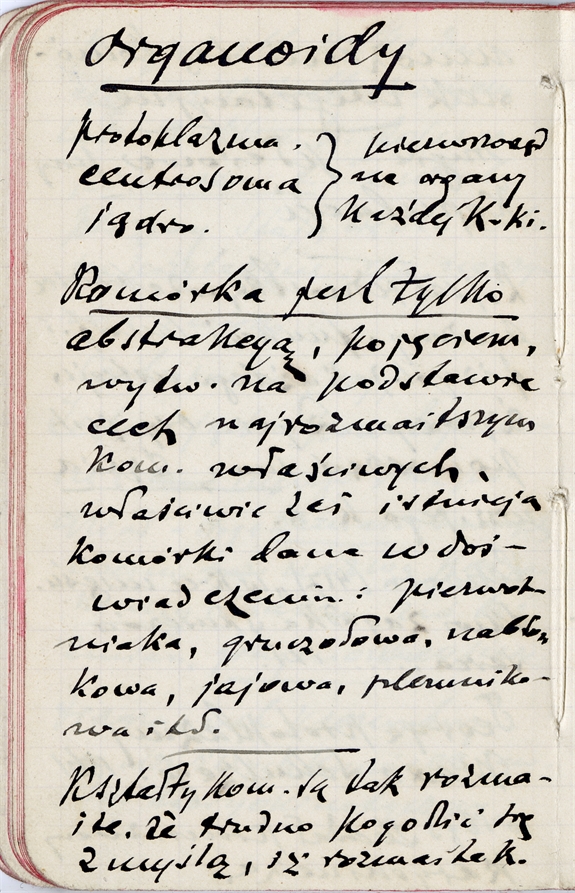 Organoidy
protoplazma.
centrosoma
jądro.
pierworzęd
ne organy
każdej k-ki.
Komórka jest tylko
abstrakcyą, pojęciem,
wytw. na podstawie
cech najrozmaitszym
kom. właściwych,
właściwie zaś istnieją
komórki dane w doś-
wiadczeniu: pierwot-
niaka, gruczołowa, nabłon
kowa, jajowa, plemniko-
wa itd.
Kształty kom. są tak rozma-
ite, że trudno pogodzić się
z myślą, iż rozmaitek.